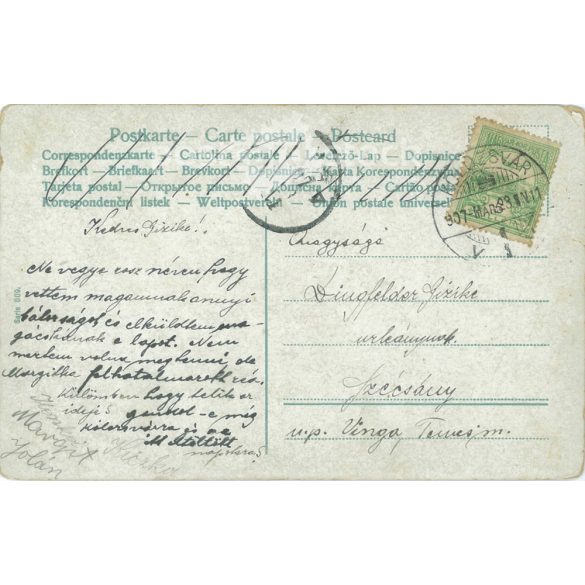 Postkarte – Carte postale – Postcard
Correspondenzkarte – Cartolina postale – Levelező-Lap – Dopisnice
Brefkort – Briefkaart – Brevkort – Dopisnica – Karta Korespondencyjna
Tarjeta postal – Открытое письмо – Дописна карта – Cartão postal
Korespondenční listek – Weltpostverein – Union postale universelle
Kedves Gizike!
Ne vegye rosz néven hogy
vettem magamnak annyi
bátorságot és elküldtem
e lapot. Nem
mertem volna megtenni de
Margitka felhatalmazott rá.
Különben hogy telik az
ideje? gondol-e még
és az
napokra?
Jolán
Serie 809
Nagyságos
Dingfelder Gizike
urleánynak
Szécsány
u.p. Vinga Temesm.
TEMESVÁR
907 MAR 23